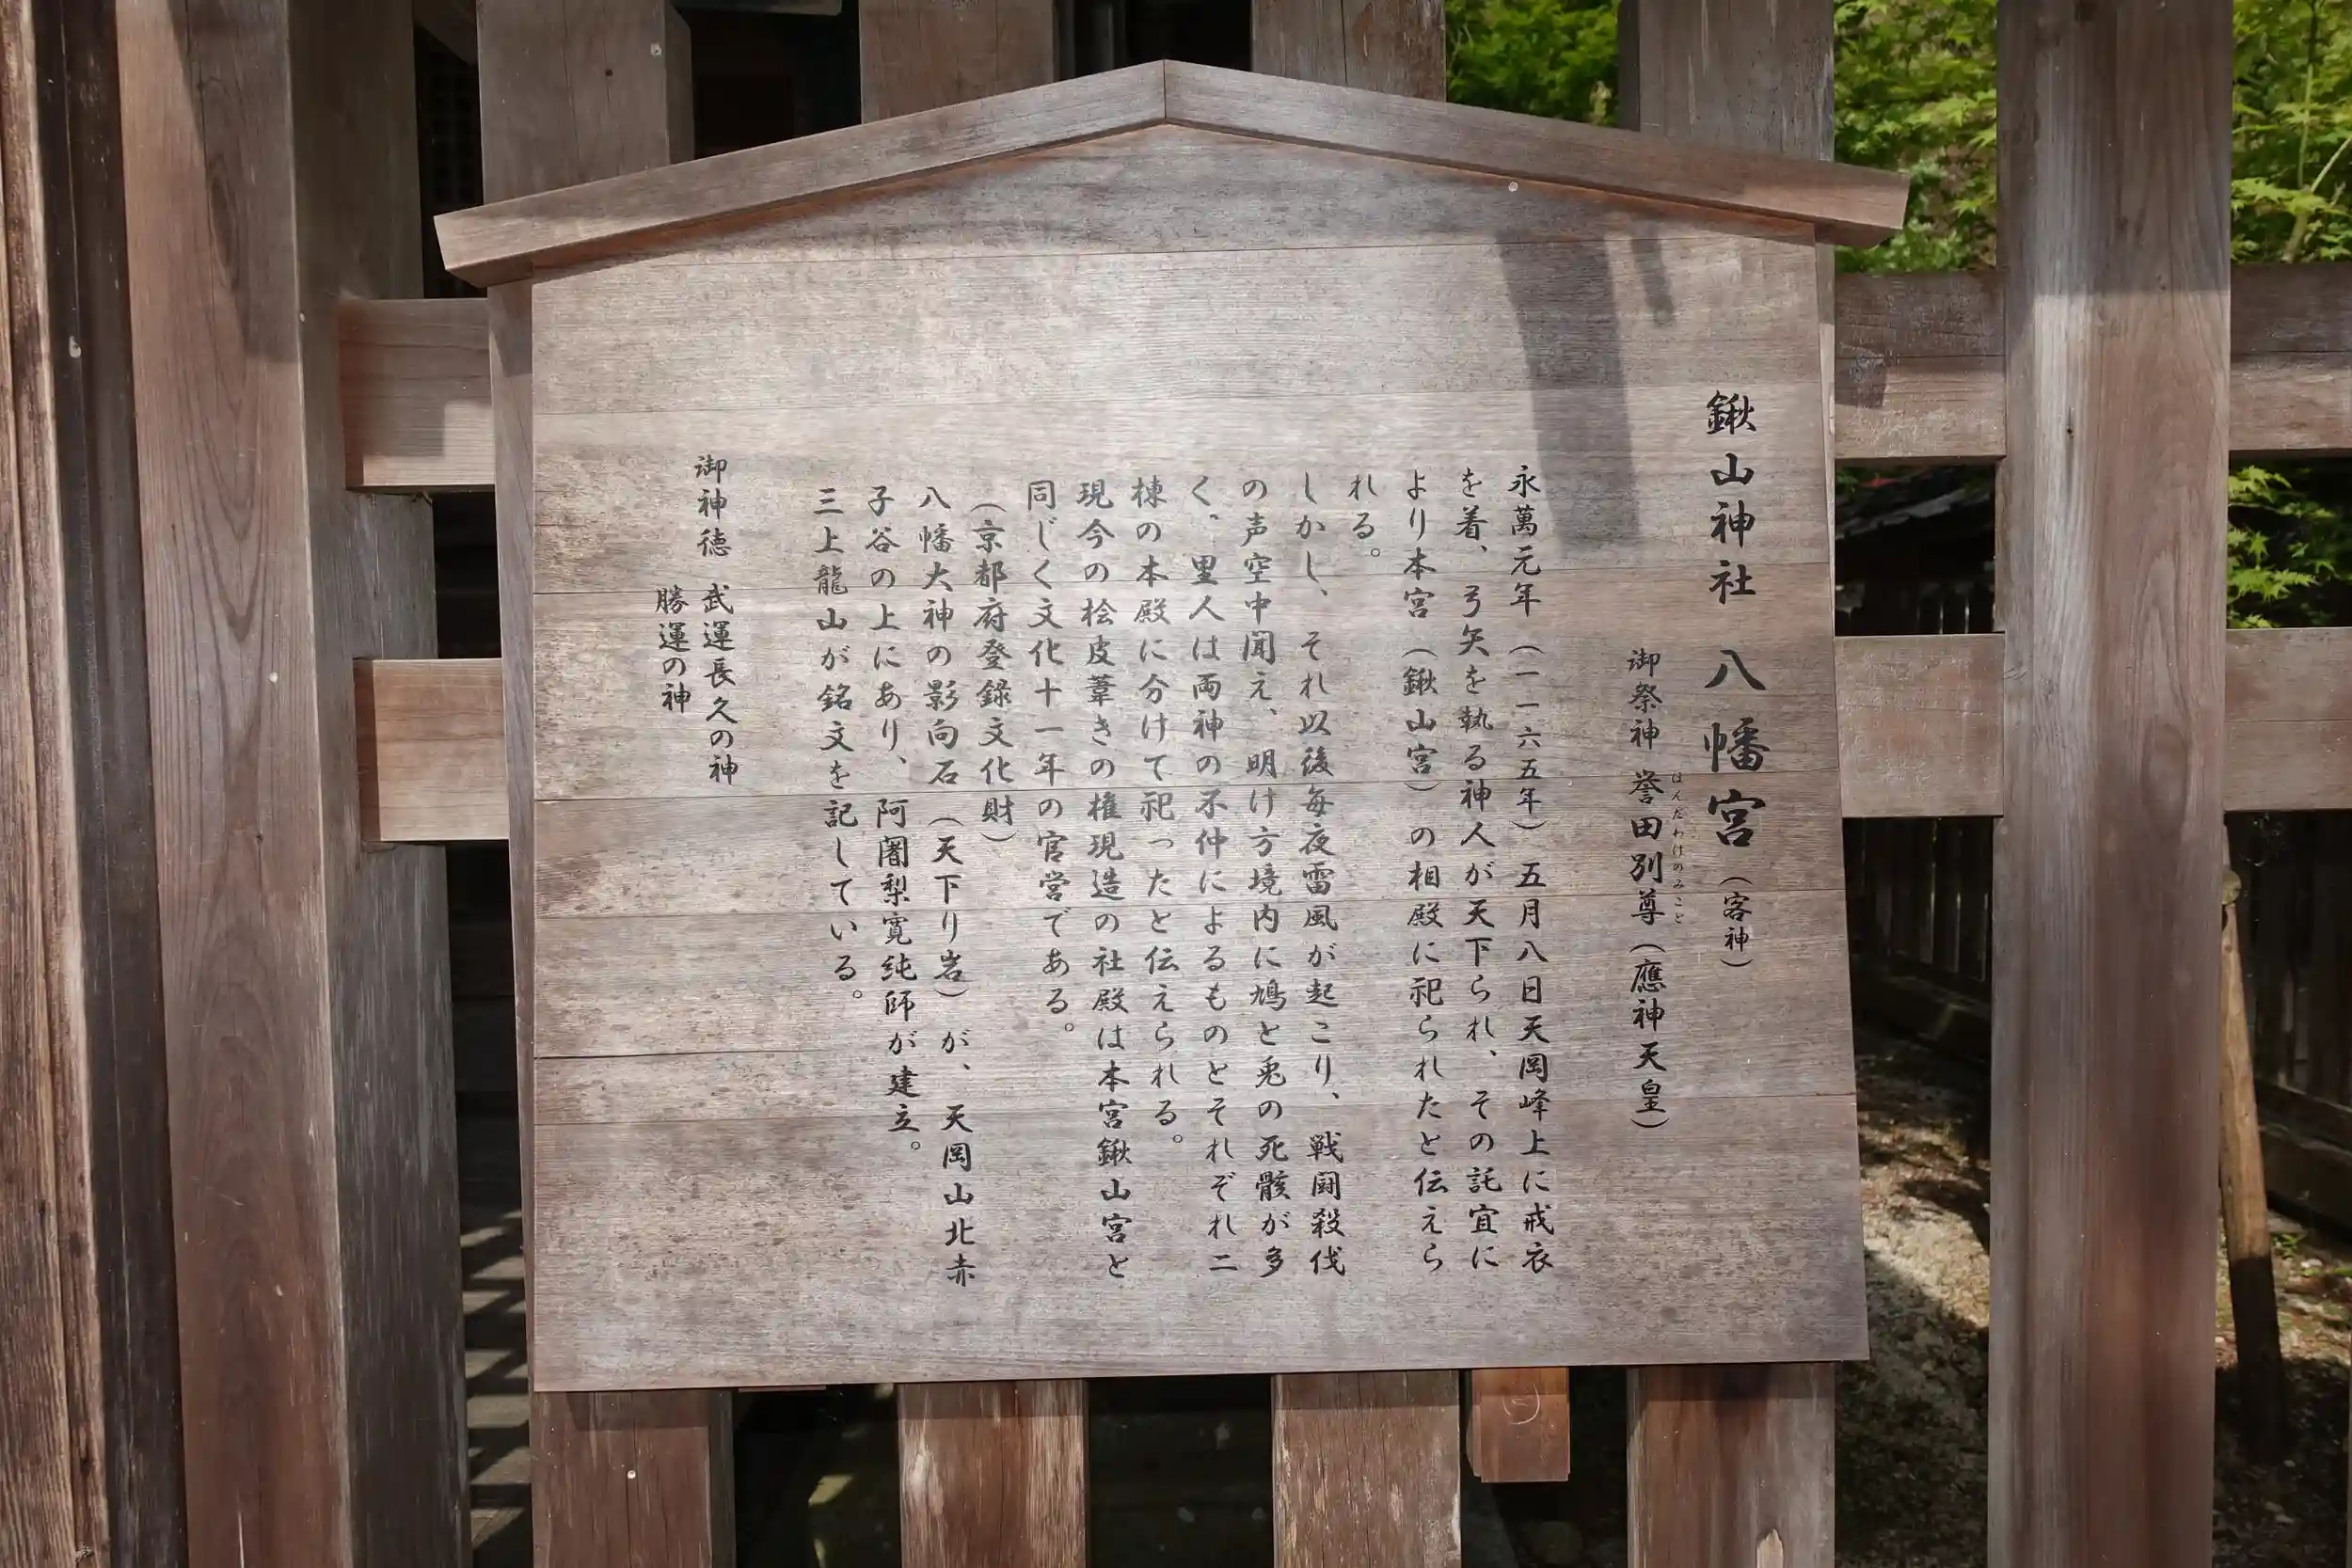 鍬山神社 八幡宮（客神）
御祭神 誉田別尊（應神天皇）
ほんだわけのみこと
永萬元年（一一六五年）五月八日天岡峰上に戎衣
を着、弓矢を執る神人が天下られ、その託宣に
より本宮（鍬山宮）の相殿に祀られたと伝えら
れる。
しかし、それ以後毎夜雷風が起こり、戦闘殺伐
の声空中聞え、明け方境内に鳩と兎の死骸が多
く、里人は両神の不仲によるものとそれぞれ二
棟の本殿に分けて祀ったと伝えられる。
現今の桧皮葺きの権現造の社殿は本宮鍬山宮と
同じく文化十一年の官営である。
（京都府登録文化財）
八幡大神の影向石（天下り岩）が、天岡山北赤
子谷の上にあり、阿闍梨寛純師が建立。
三上龍山が銘文を記している。
御神徳 武運長久の神
勝運の神